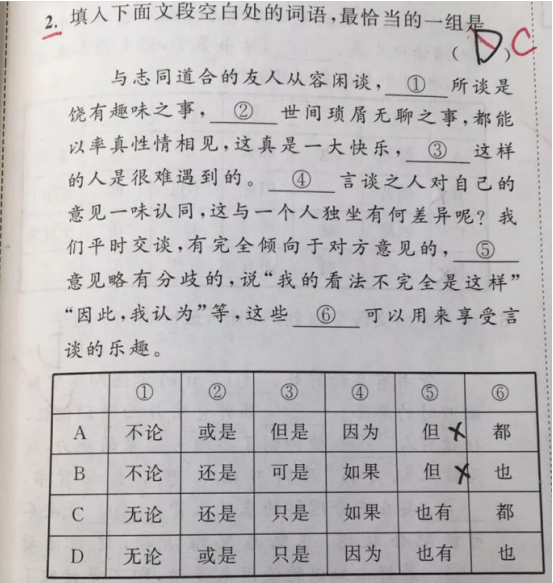 2. 填入下面文段空白处的词语,最恰当的一组是
( D ) C
与志同道合的友人从容闲谈, ① 所谈是
饶有趣味之事, ② 世间琐屑无聊之事,都能
以率真性情相见,这真是一大快乐, ③ 这样
的人是很难遇到的。 ④ 言谈之人对自己的
意见一味认同,这与一个人独坐有何差异呢? 我
们平时交谈,有完全倾向于对方意见的, ⑤
意见略有分歧的,说“我的看法不完全是这样”
“因此,我认为”等,这些 ⑥ 可以用来享受言
谈的乐趣。
① ② ③ ④ ⑤ ⑥
A 不论 或是 但是 因为 但 × 都
B 不论 还是 可是 如果 但 × 也
C 无论 还是 只是 如果 也有 都
D 无论 或是 只是 因为 也有 也